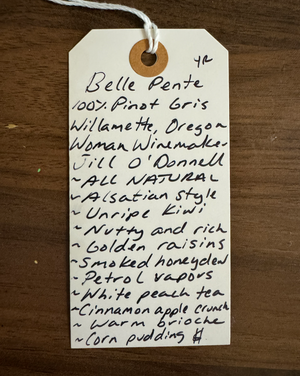 YR
Belle Pente
100% Pinot Gris
Willamette, Oregon
Woman Winemaker
Jill O'Donnell
~ALL NATURAL
~Alsatian style
~Unripe Kiwi
~Nutty and rich
~Golden raisins
~Smoked honeydew
~Petrol vapors
~White peach tea
~Cinnamon apple crunch
~Warm brioche
~Corn pudding